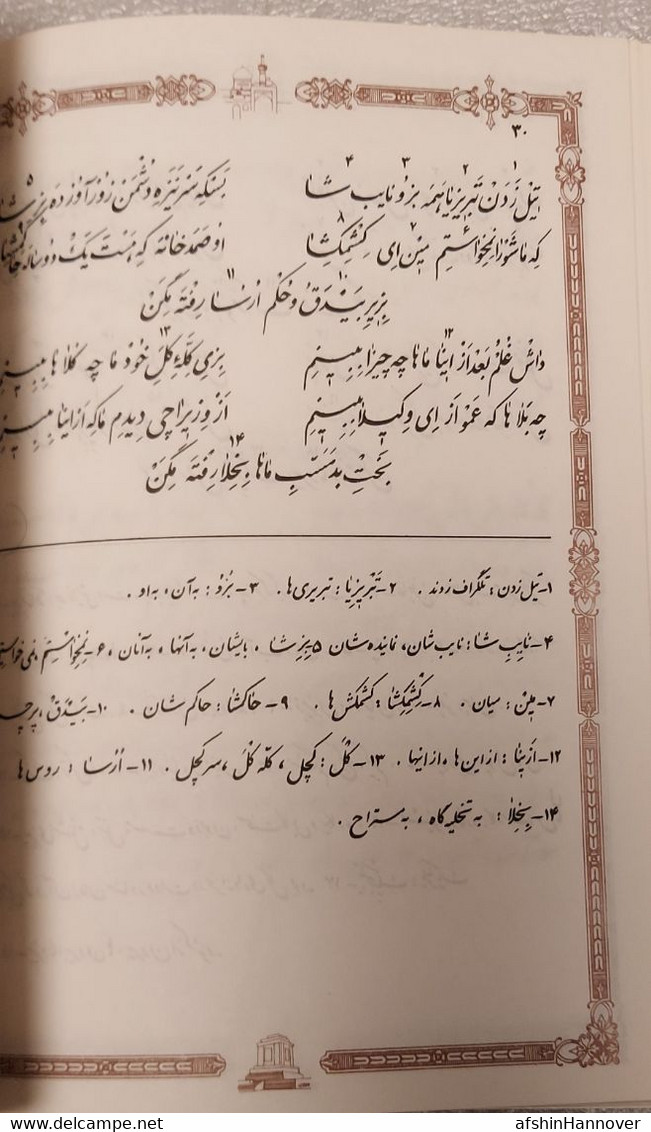 ۳۰
تیل زَدَن تَبریزیا هَمَه بزو نایب شا بَسکِه سَر نیزه دُشمَن زور آوُرده بِزِشا
که ما شورا نِخواستِم مِیَن ای کِشمِکِشا اوصَمَدخانَه که هَست یَک دو ساله حاکِمشا
بِزیرِ بَیدَق و حُکمِ اُرُسا رِفتَه مِگَن
داش غُلُم بَعد اَز اینا ماها چه چیزا بِبینِم بِزی کَلّهٔ کَلِ خُودِ ما چه کُلاها بِبینِم
چه بَلاها که عَمو اَز ای وکیلا بِبینِم اَز وَزیرا چی دیدِم ما که اَز اینا بِبینِم
بَختِ بد مَسَّبِ ماها بِخَلا رِفتَه مِگَن
۱-تیل زدن: تلگراف زدند. ۲-تَبریزیا: تبریزی‌ها. ۳-بُزُو: به آن، به او.
۴-نایبِ شا: نایب شان، نماینده شان ۵ بِزِشا، بایشان، به آنها، به آنان، ۶-نِخواستِم، نمی‌خواستیم
۷-مِیَن: میان. ۸-کِشمِکِشا: کشمکش‌ها. ۹-حاکِشا: حاکم شان. ۱۰-بَیدَق، پرچم
۱۲-اَزینا: از این‌ها، از اینها. ۱۳-کَل: کچل، کلّه کل، سرکچل. ۱۱-اُرُسا: روس‌ها
۱۴-بِخَلا: به تخلیه گاه، به مستراح.
www.delcampe.net
afshinHannover